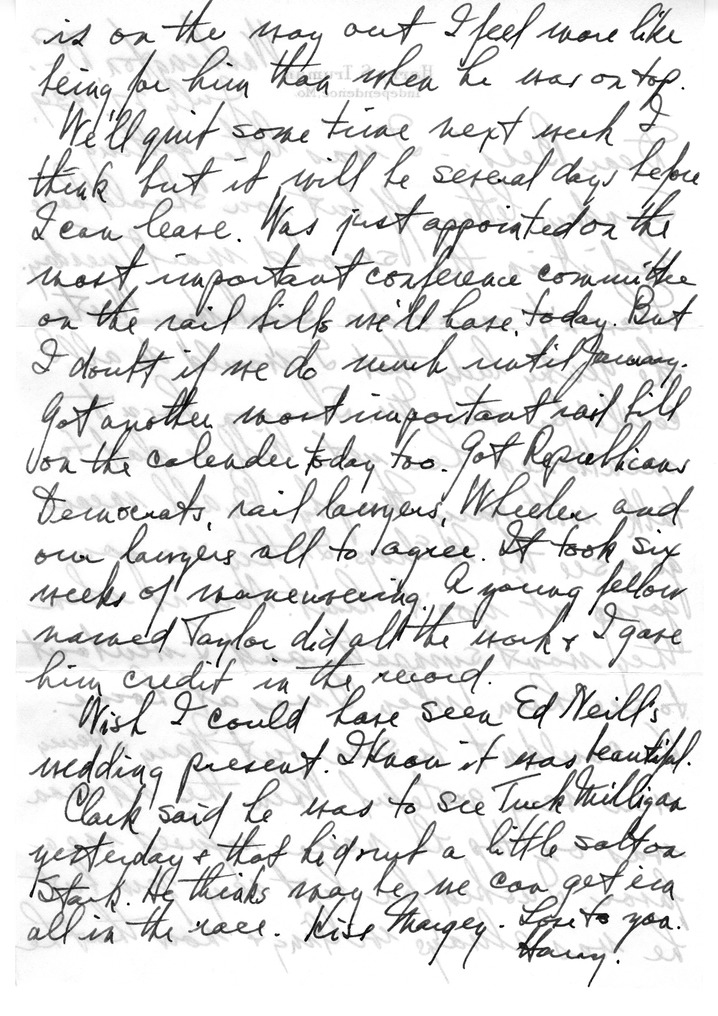 is on the way out I feel more like
being for him than when he was on top.
We'll quit some time next week I
think but it will be several days before
I can leave. Was just appointed on the
most important conference committee
on the rail bills we'll have, today. But
I doubt if we do much until January.
Got another most important rail bill
on the calender today too. Got Republicans
Democrats, rail lawyers, Wheeler and
our lawyers all to agree. It took six
weeks of maneuvering. A young fellow
named Taylor did all the work & I gave
him credit in the record.
Wish I could have seen Ed Neill's
wedding present. I know it was beautiful.
Clark said he was to see Tuck Milligan
yesterday & that he'd rub a little salt on
Stark. He thinks maybe we can get 'em
all in the race. Kiss Margey. Love to you.
Harry.